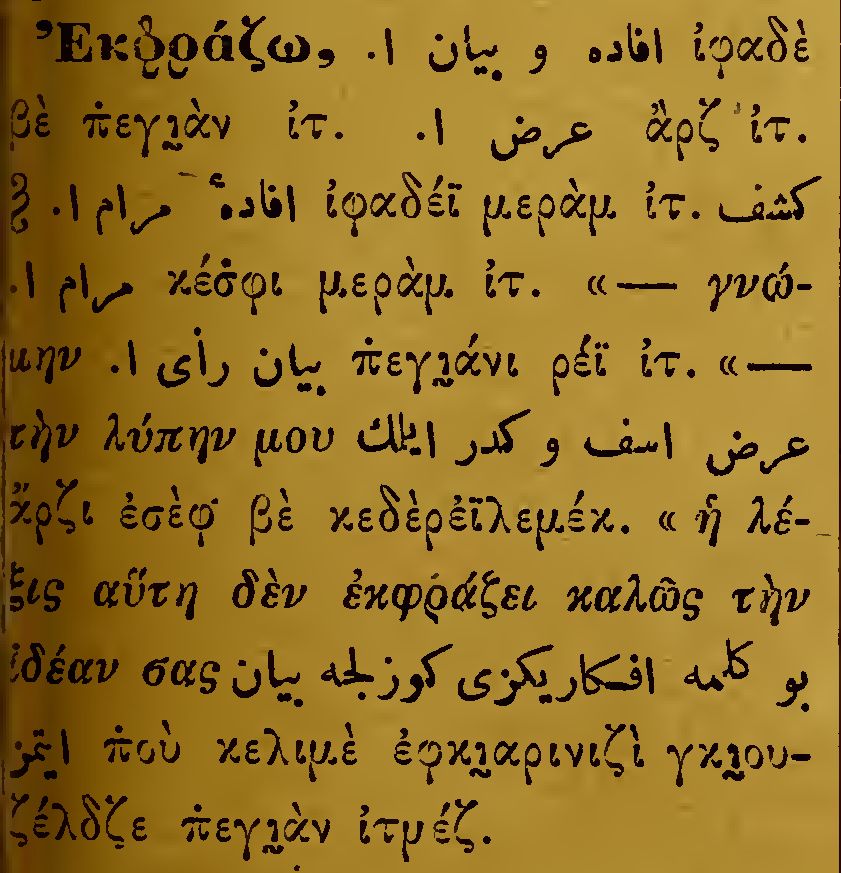 Ἐκφράζω, افاده و بیان ا. ἰφαδὲ
βὲ π̇εγι̰ὰν ἰτ. عرض ا. ἂρζ ἰτ.
§ افادهٔ مرام ا. ἰφαδέϊ μερὰμ ἰτ. كشف
مرام ا. κέσ̇φι μερὰμ ἰτ. «— γνώ-
μην بیان رأی ا. π̇εγι̰άνι ρέϊ ἰτ. «—
τὴν λύπην μου عرض اسف و كدر ایلك
ἄρζι ἐσὲφ βὲ κεδὲρἐϊλεμέκ. « ἡ λέ-
ξις αὕτη δὲν ἐκφράζει καλῶς τὴν
ἰδέαν σας بو كلمه افكاریكزی كوزلجه بیان
ایتمز π̇οὺ κελιμὲ ἐφκι̰αρινιζὶ γκι̰ου-
ζέλδζε π̇εγι̰ὰν ἰτμέζ.